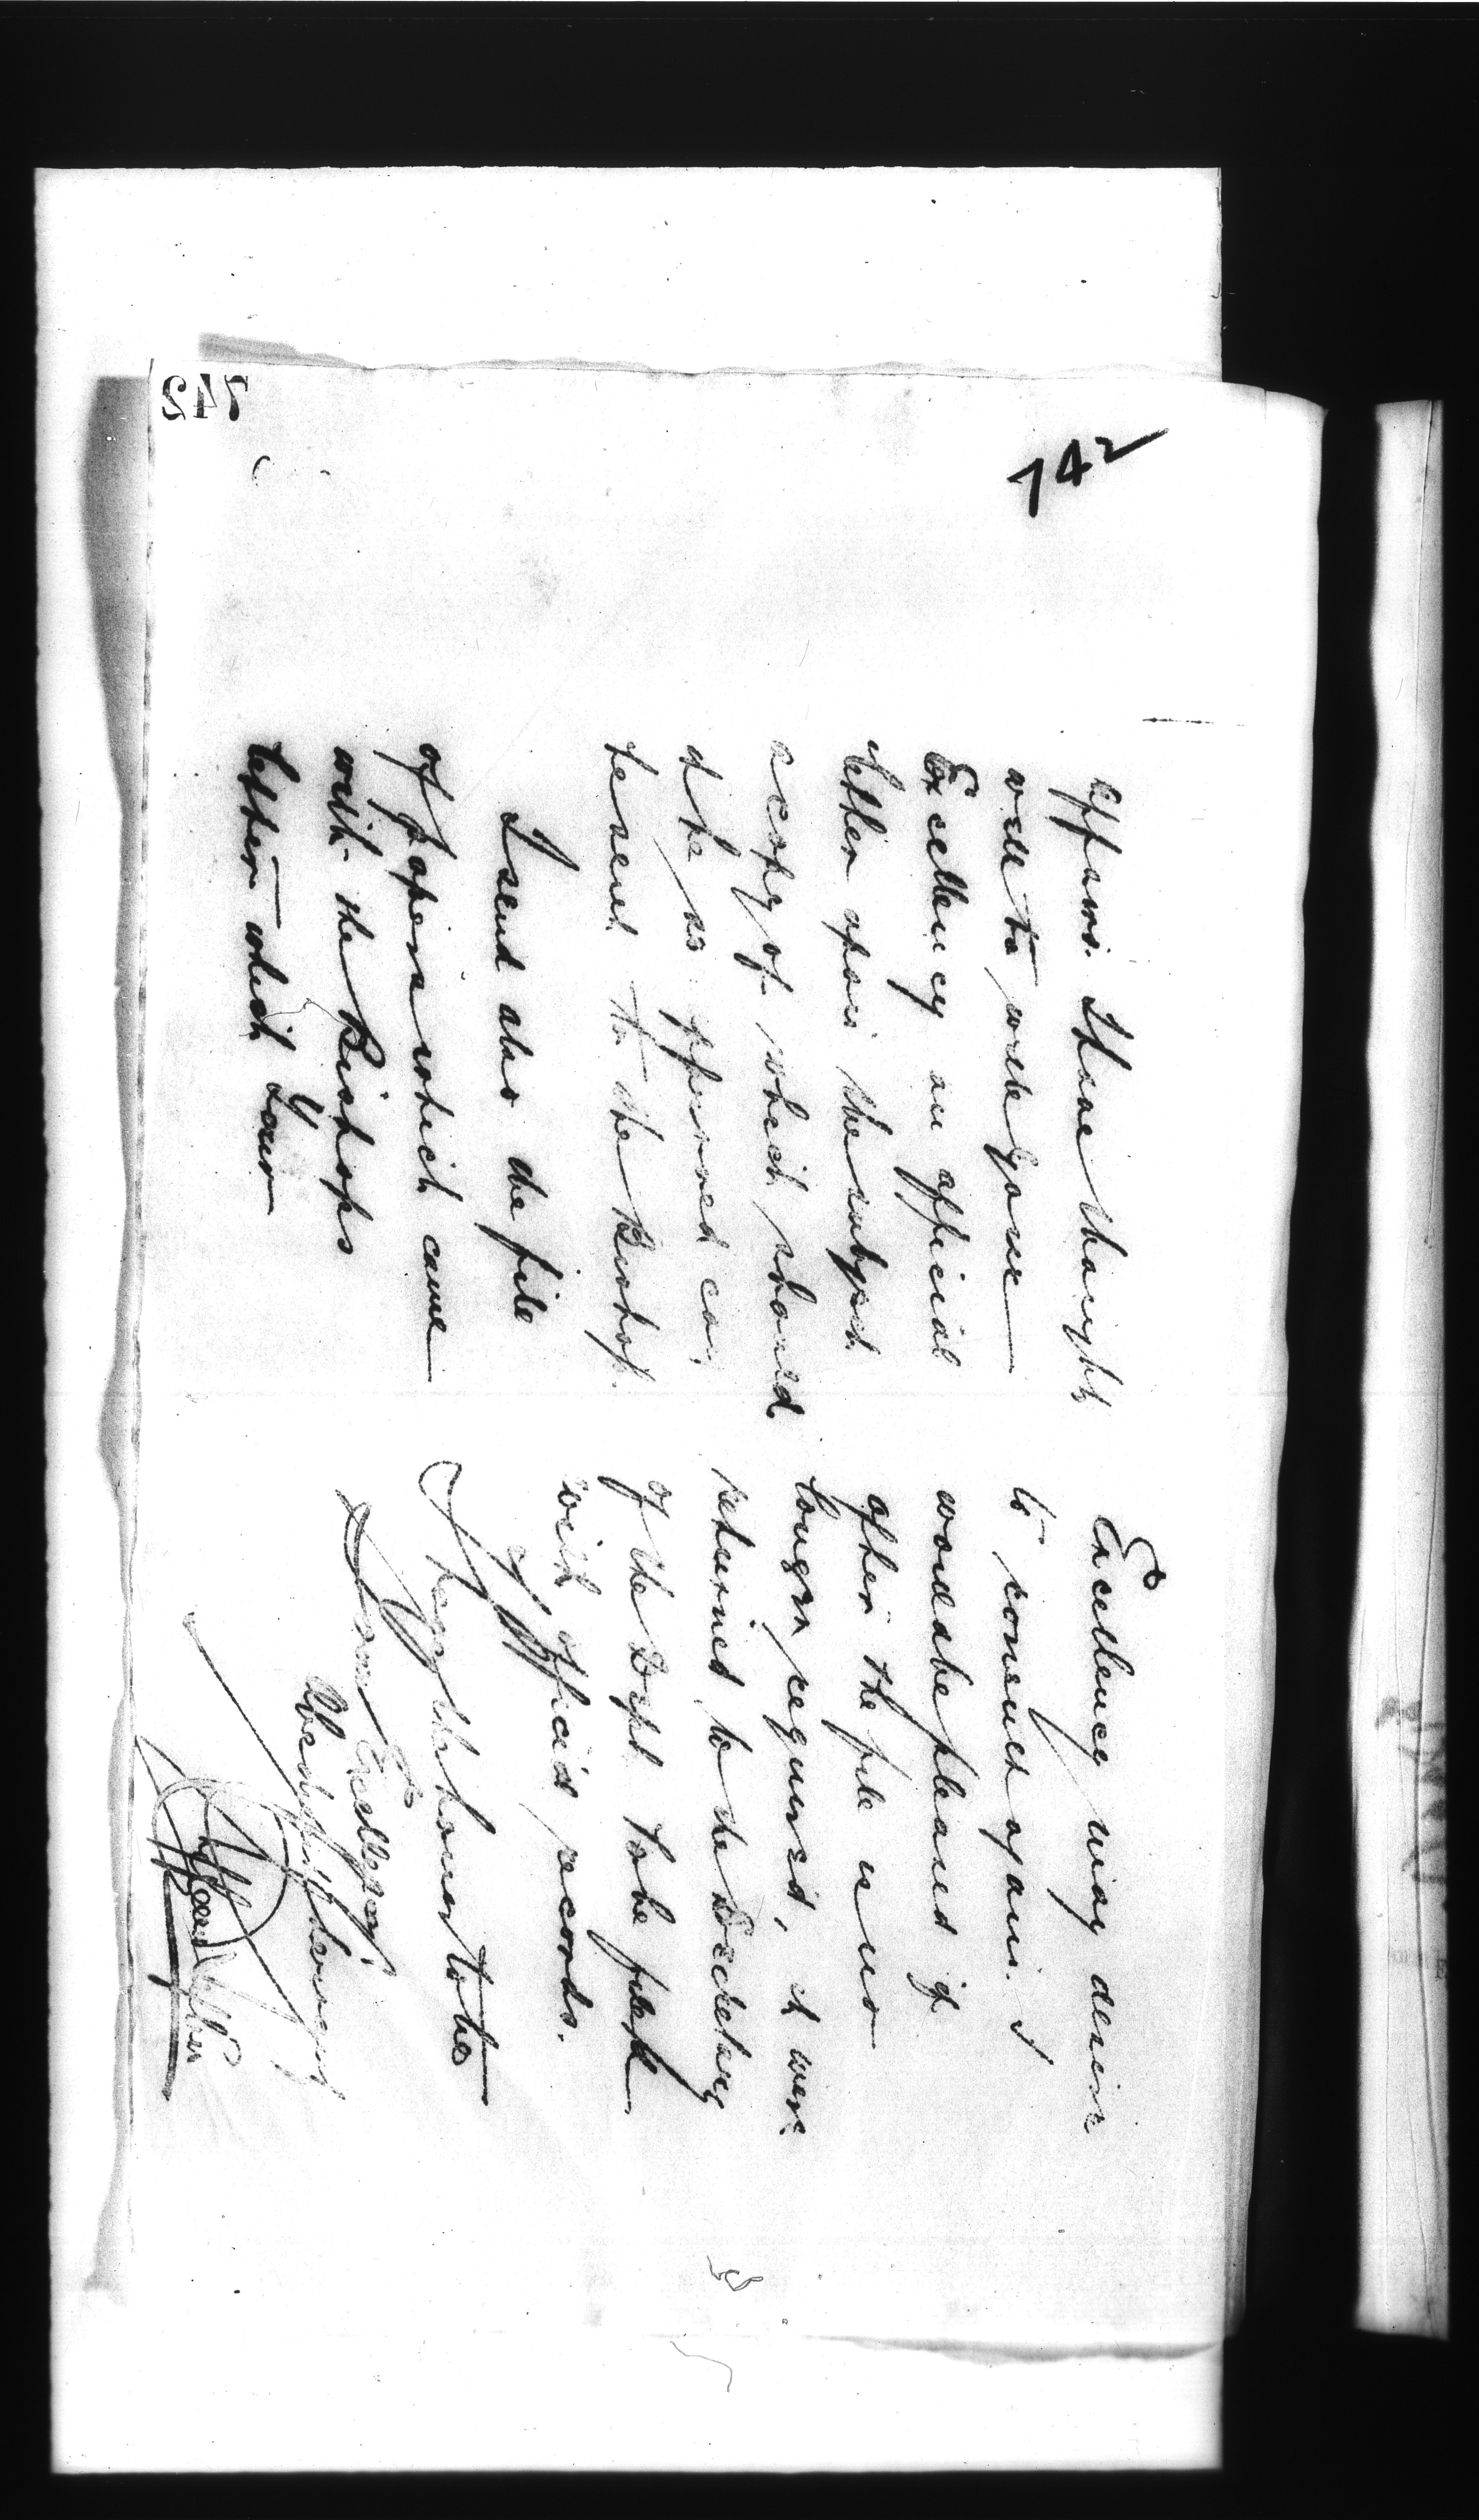 742
742
affairs. I have thought
well to write Your
Excellency an official
letter upon the subject
a copy of which should
d be as approved can
be sent to the Bishop.
I send also the file
of papers which came
with the Bishops
letter which Your
Excellency may desire
to consult again. I
would be pleased if
after the file is no
longer required, it were
returned to the Secretary
of the Dept to be filed
with official records.
I have the honor to be
Your Excellency
Obedient